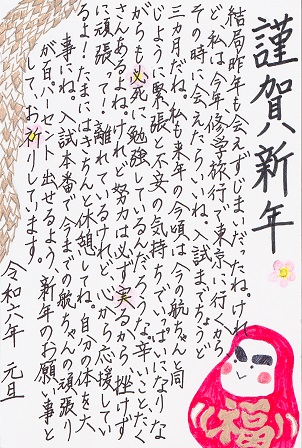 謹賀新年
結局昨年も会えずじまいだったね。けれ
ど、私は今年修学旅行で東京に行くから
その時に会えたらいいね。入試まで、ちょうど
三カ月だね。私も来年の今頃は今の航ちゃんと同
じように緊張と不安の気持ちでいっぱいになりな
がらも必死に勉強しているんだろうな。辛いことだく
さんあるよね。けれど努力は必ず実るから、挫けず
に頑張って！離れているけれど、心から応援してい
るよ！たまにはきちんと休憩してね。自分の体を大
事にね。入試本番で今までの航ちゃんの頑張り
が百パーセント出せるよう、新年のお願い事と
して、お祈りしています。
令和六年 元旦
福